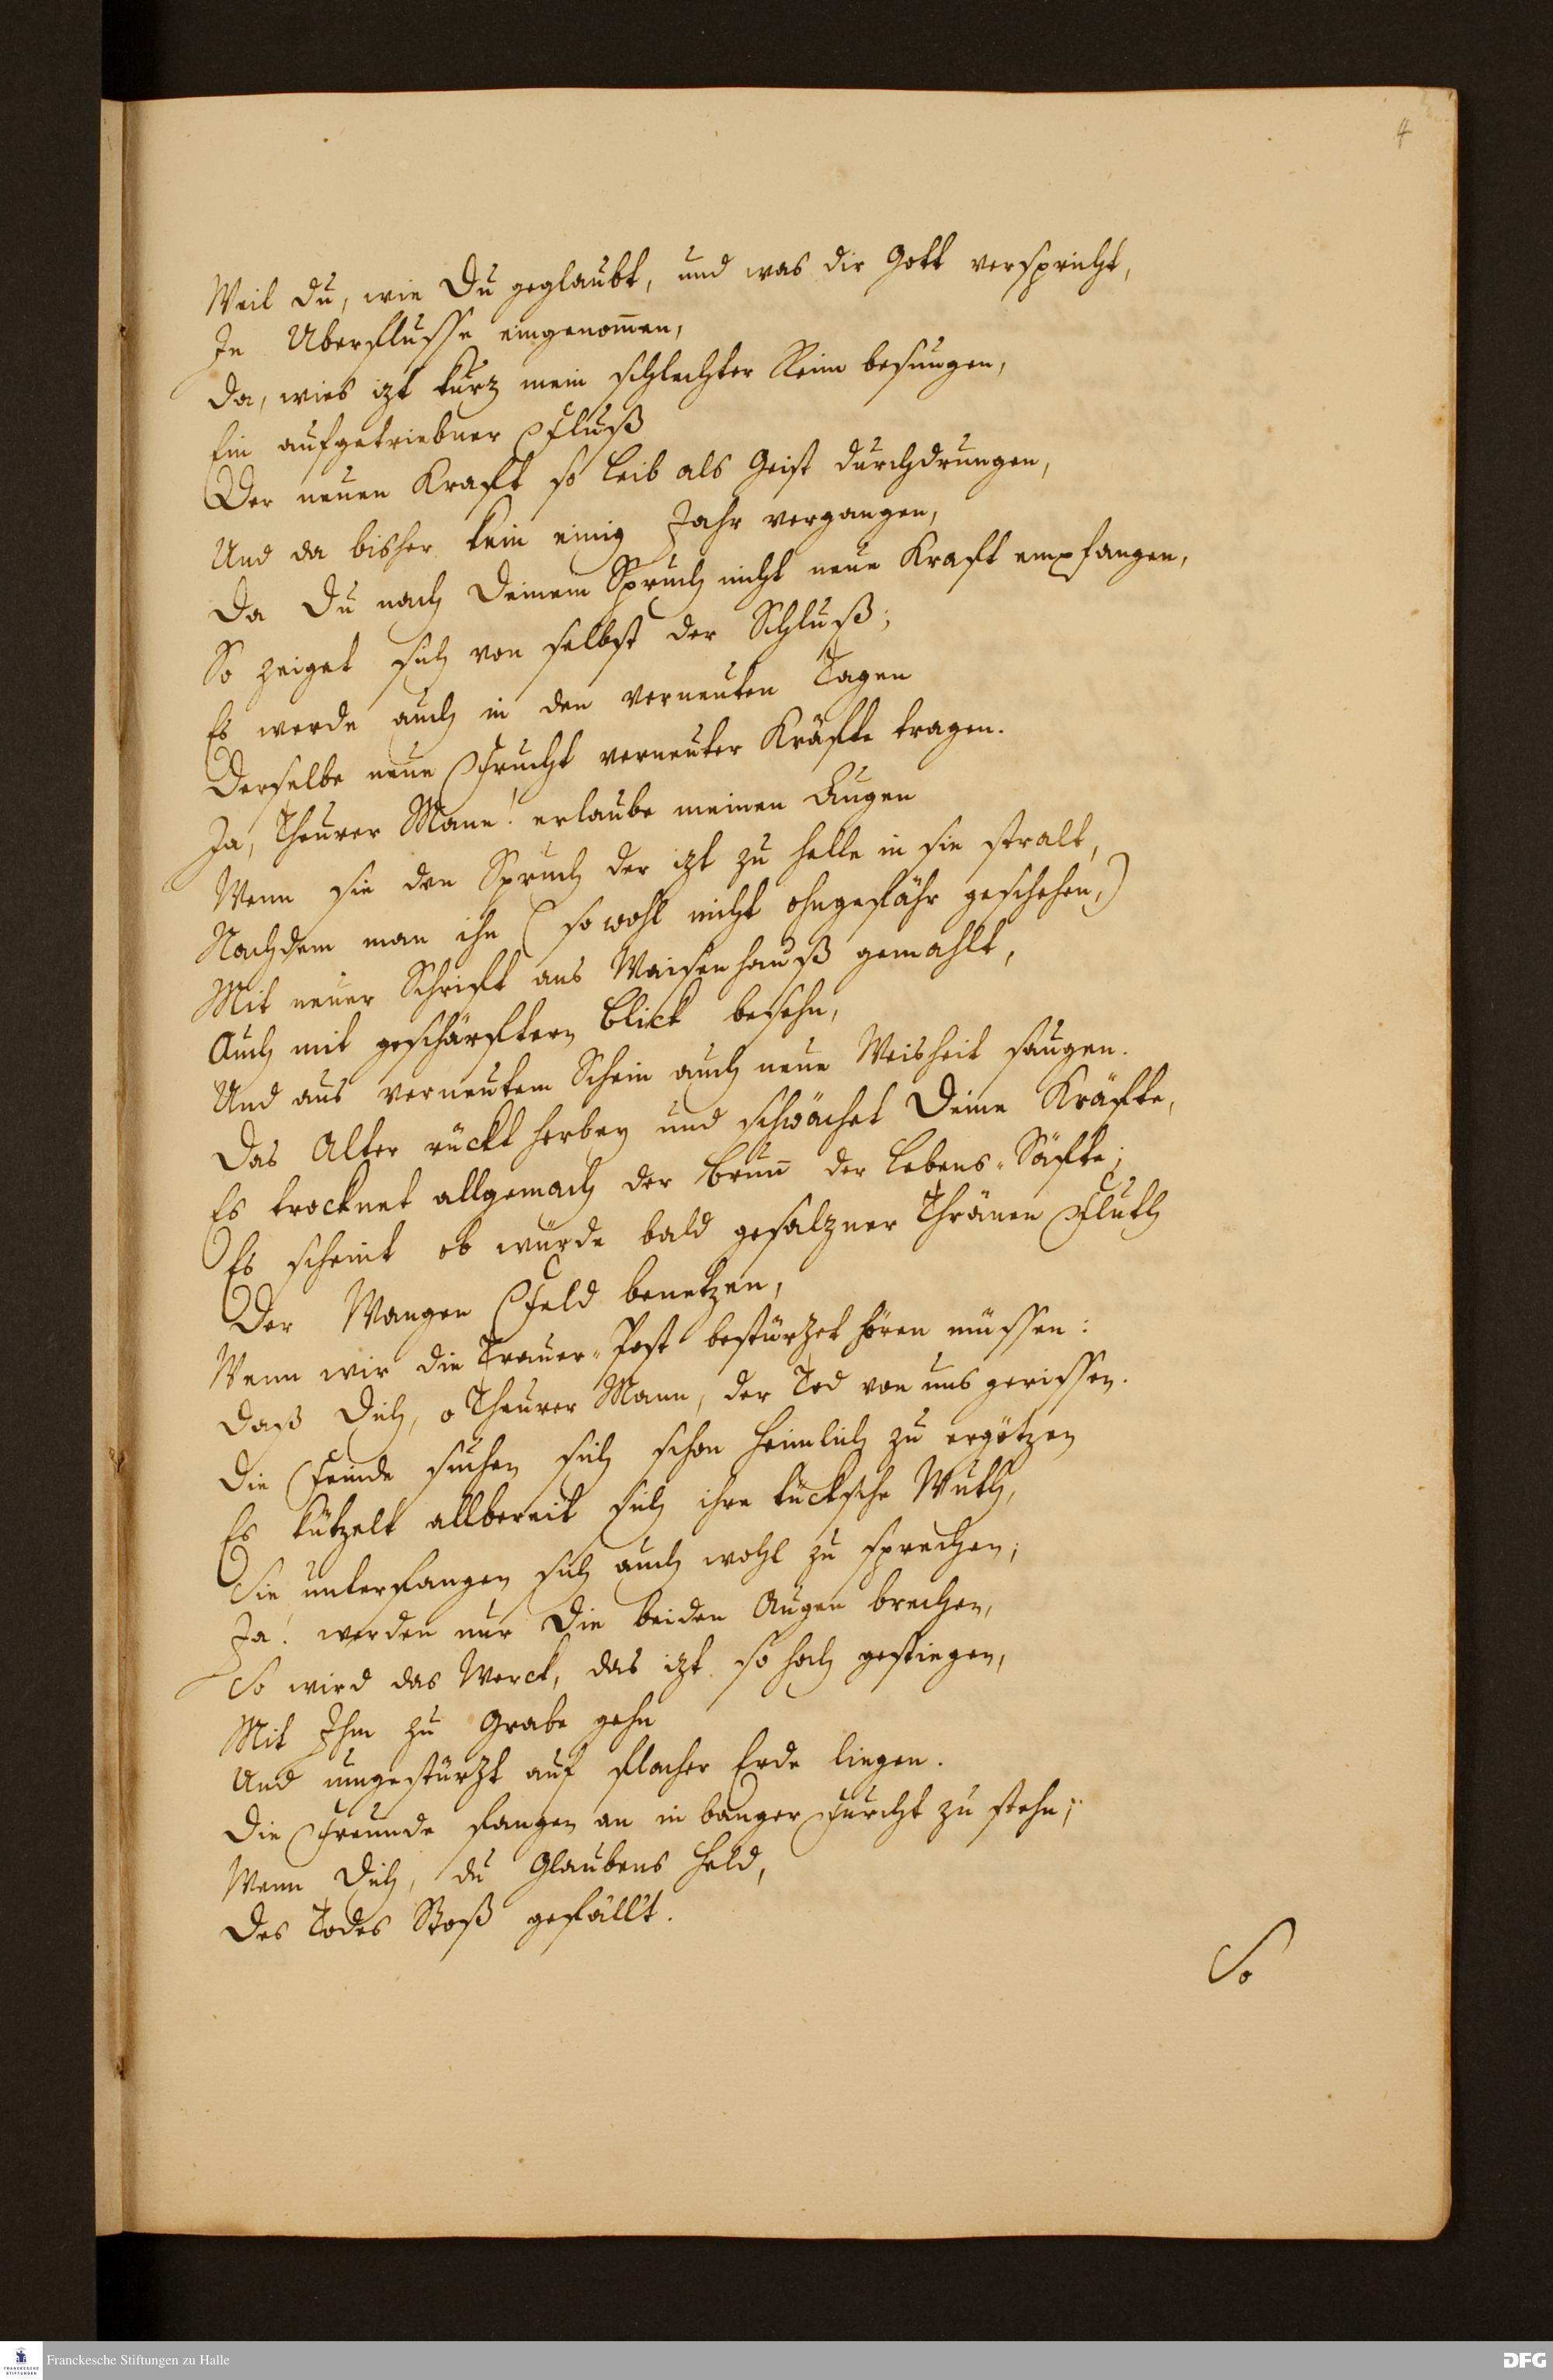 4
Weil du, wie Du geglaubt, und was dir Gott verspricht,
In Uberflusse eingenom̄en,
Da, wies izt kurz mein schlechter Reim besungen,
Ein aufgetriebner Fluß
Der neuen Kraft so Leib als Geist durchdrungen,
Und da bisher kein einig Jahr vergangen,
Da Du nach Deinem Spruch nicht neue Kraft empfangen,
So zeiget sich von selbst der Schluß;
Es werde auch in den verneuten Tagen
Derselbe neue Frucht verneuter Kräfte tragen.
Ja, Theurer Mann! erlaube meinen Augen
Wenn sie den Spruch der izt zu helle in sie stralt,
Nachdem man ihn (so wohl nicht ohngefähr geschehen,)
Mit neuer Schrift ans Waisenhauß gemahlt,
Auch mit geschärftern Blick besehn,
Und aus verneutem Schein auch neue Weisheit saugen.
Das Alter rückt herbey und schwächet Deine Kräfte,
Es trocknet allgemach der Brun̄ der Lebens-Säfte;
Es scheint ob würde bald gesalzner Thränen Fluth
Der Wangen Feld benetzen,
Wenn wir die Trauer-Post bestürzet hören müssen:
Daß Dich, o Theurer Mann, der Tod von uns gerissen.
Die Feinde suchen sich schon heimlich zu ergötzen
Es kützelt allbereit sich ihre tücksche Wuth,
Sie unterfangen sich auch wohl zu sprechen;
Ja! werden nur Die beiden Augen brechen,
So wird das Werck, das izt so hoch gestiegen,
Mit Ihm zu Grabe gehn
Und umgestürzt auf flacher Erde liegen.
Die Freunde fangen an in banger Furcht zu stehn;
Wenn Dich, du Glaubens Held,
Des Todes Stoß gefällt.
So
Franckesche Stiftungen zu Halle
FRANCKESCHE STIFTUNGEN
DFG